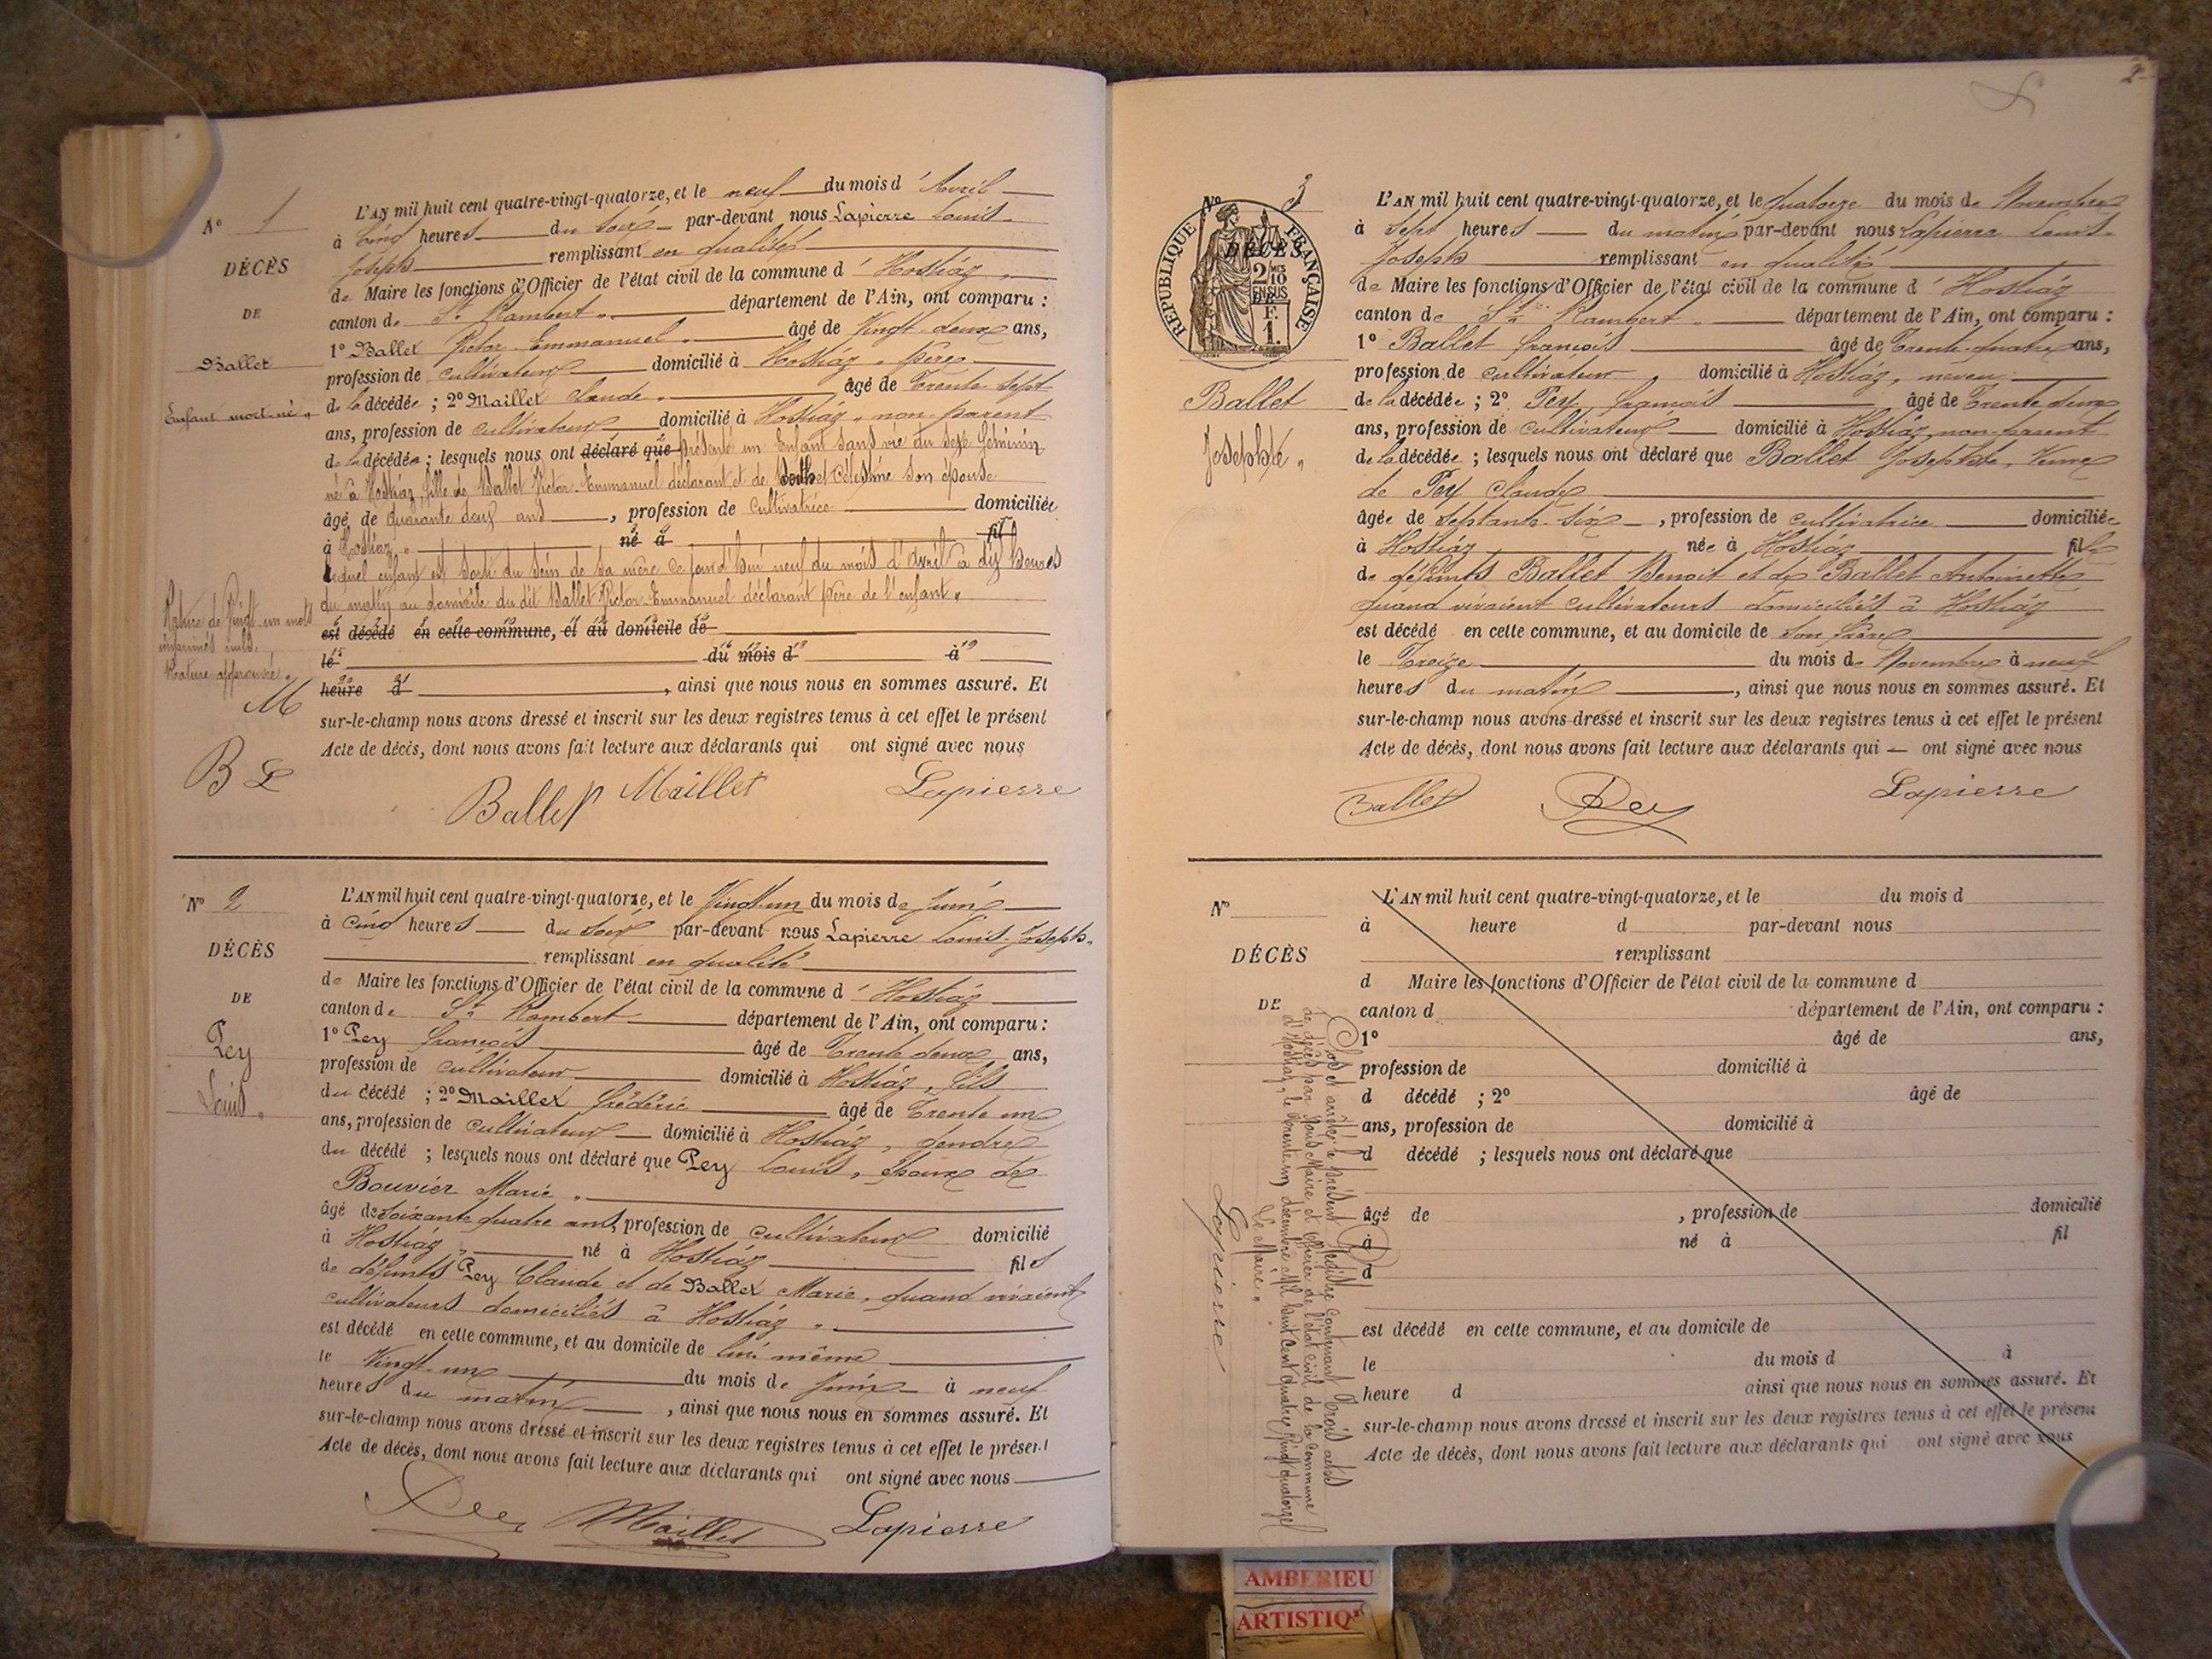 N° 1
DÉCÈS
DE
Ballet
Enfant mort-né
L'AN mil huit cent quatre-vingt-quatorze, et le neuf du mois d'Avril
à Cinq heures du soir par-devant nous Lapierre Louis
Joseph remplissant en qualité
de Maire les fonctions d'Officier de l'état civil de la commune d'Hostiaz
canton de St Rambert département de l'Ain, ont comparu :
1° Ballet Victor Emmanuel âgé de Vingt-deux ans,
profession de cultivateur domicilié à Hostiaz, père
de la décédée ; 2° Maillet Claude âgé de Trente sept
ans, profession de cultivateur domicilié à Hostiaz, non parent
de la décédée ; lesquels nous ont déclaré que présenté un Enfant sans vie du sexe féminin
né à Hostiaz, fille de Ballet Victor Emmanuel déclarant, et de Célestine son épouse
âgé de quarante ans, profession de Cultivatrice domiciliée
à Hostiaz né à fil
lequel enfant est sorti du sein de sa mère ce jourd'hui neuf du mois d'Avril à dix heures
du matin au domicile du dit Ballet Victor Emmanuel déclarant père de l'enfant
est décédé en cette commune, et au domicile de
le du mois d à
heure d , ainsi que nous nous en sommes assuré. Et
sur-le-champ nous avons dressé et inscrit sur les deux registres tenus à cet effet le présent
Acte de décès, dont nous avons fait lecture aux déclarants qui ont signé avec nous
Rature de Vingt-un mots
imprimés nuls.
Rature approuvée.
M
B L
Ballet Maillet Lapierre
N° 2
DÉCÈS
DE
Pey
Louis
L'AN mil huit cent quatre-vingt-quatorze, et le Vingt-un du mois de Juin
à cinq heures du soir par-devant nous Lapierre Louis-Joseph
remplissant en qualité
de Maire les fonctions d'Officier de l'état civil de la commune d'Hostiaz
canton de St Rambert département de l'Ain, ont comparu :
1° Pey François âgé de Trente deux ans,
profession de cultivateur domicilié à Hostiaz, fils
du décédé ; 2° Maillet Frédéric âgé de Trente un
ans, profession de cultivateur domicilié à Hostiaz, gendre
du décédé ; lesquels nous ont déclaré que Pey Louis, Epoux de
Bouvier Marie
âgé de soixante quatre ans, profession de cultivateur domicilié
à Hostiaz né à Hostiaz fils
de défunts Pey Claude et de Ballet Marie, quand vivaient
cultivateurs domiciliés à Hostiaz
est décédé en cette commune, et au domicile de lui même
le Vingt-un du mois de Juin à neuf
heures du matin , ainsi que nous nous en sommes assuré. Et
sur-le-champ nous avons dressé et inscrit sur les deux registres tenus à cet effet le présent
Acte de décès, dont nous avons fait lecture aux déclarants qui ont signé avec nous
Pey Maillet Lapierre
2
N° 3
RÉPUBLIQUE FRANÇAISE
2/10
EN SUS
F.
1.
DÉCÈS
Ballet
Josephte
L'AN mil huit cent quatre-vingt-quatorze, et le quatorze du mois de Novembre
à sept heures du matin par-devant nous Lapierre Louis
Joseph remplissant en qualité
de Maire les fonctions d'Officier de l'état civil de la commune d'Hostiaz
canton de St Rambert département de l'Ain, ont comparu :
1° Ballet François âgé de Trente-quatre ans,
profession de cultivateur domicilié à Hostiaz, neveu
de la décédée ; 2° Pey François âgé de Trente deux
ans, profession de cultivateur domicilié à Hostiaz, non-parent
de la décédée ; lesquels nous ont déclaré que Ballet Josephte, Veuve
de Pey Claude
âgée de septante-six , profession de cultivatrice domiciliée
à Hostiaz née à Hostiaz fille
de défunts Ballet Benoit et de Ballet Antoinette
quand vivaient cultivateurs domiciliés à Hostiaz
est décédé en cette commune, et au domicile de son frère
le Treize du mois de Novembre à neuf
heures du matin , ainsi que nous nous en sommes assuré. Et
sur-le-champ nous avons dressé et inscrit sur les deux registres tenus à cet effet le présent
Acte de décès, dont nous avons fait lecture aux déclarants qui — ont signé avec nous
Ballet Pey Lapierre
N°
DÉCÈS
DE
L'AN mil huit cent quatre-vingt-quatorze, et le du mois d
à heure d par-devant nous
remplissant
d Maire les fonctions d'Officier de l'état civil de la commune d
canton d département de l'Ain, ont comparu :
1° âgé de ans,
profession de domicilié à
d décédé ; 2° âgé de
ans, profession de domicilié à
d décédé ; lesquels nous ont déclaré que
âgé de , profession de domicilié
à né à fil
d
est décédé en cette commune, et au domicile de
le du mois d à
heure d ainsi que nous nous en sommes assuré. Et
sur-le-champ nous avons dressé et inscrit sur les deux registres tenus à cet effet le présent
Acte de décès, dont nous avons fait lecture aux déclarants qui ont signé avec nous
Clos et arrêté le présent Registre contenant Trois actes
de décès par Nous Maire et Officier de l'état civil de la commune
d'Hostiaz, le trente-un décembre Mil huit cent quatre Vingt quatorze
Le Maire
Lapierre
AMBERIEU
ARTISTIQ